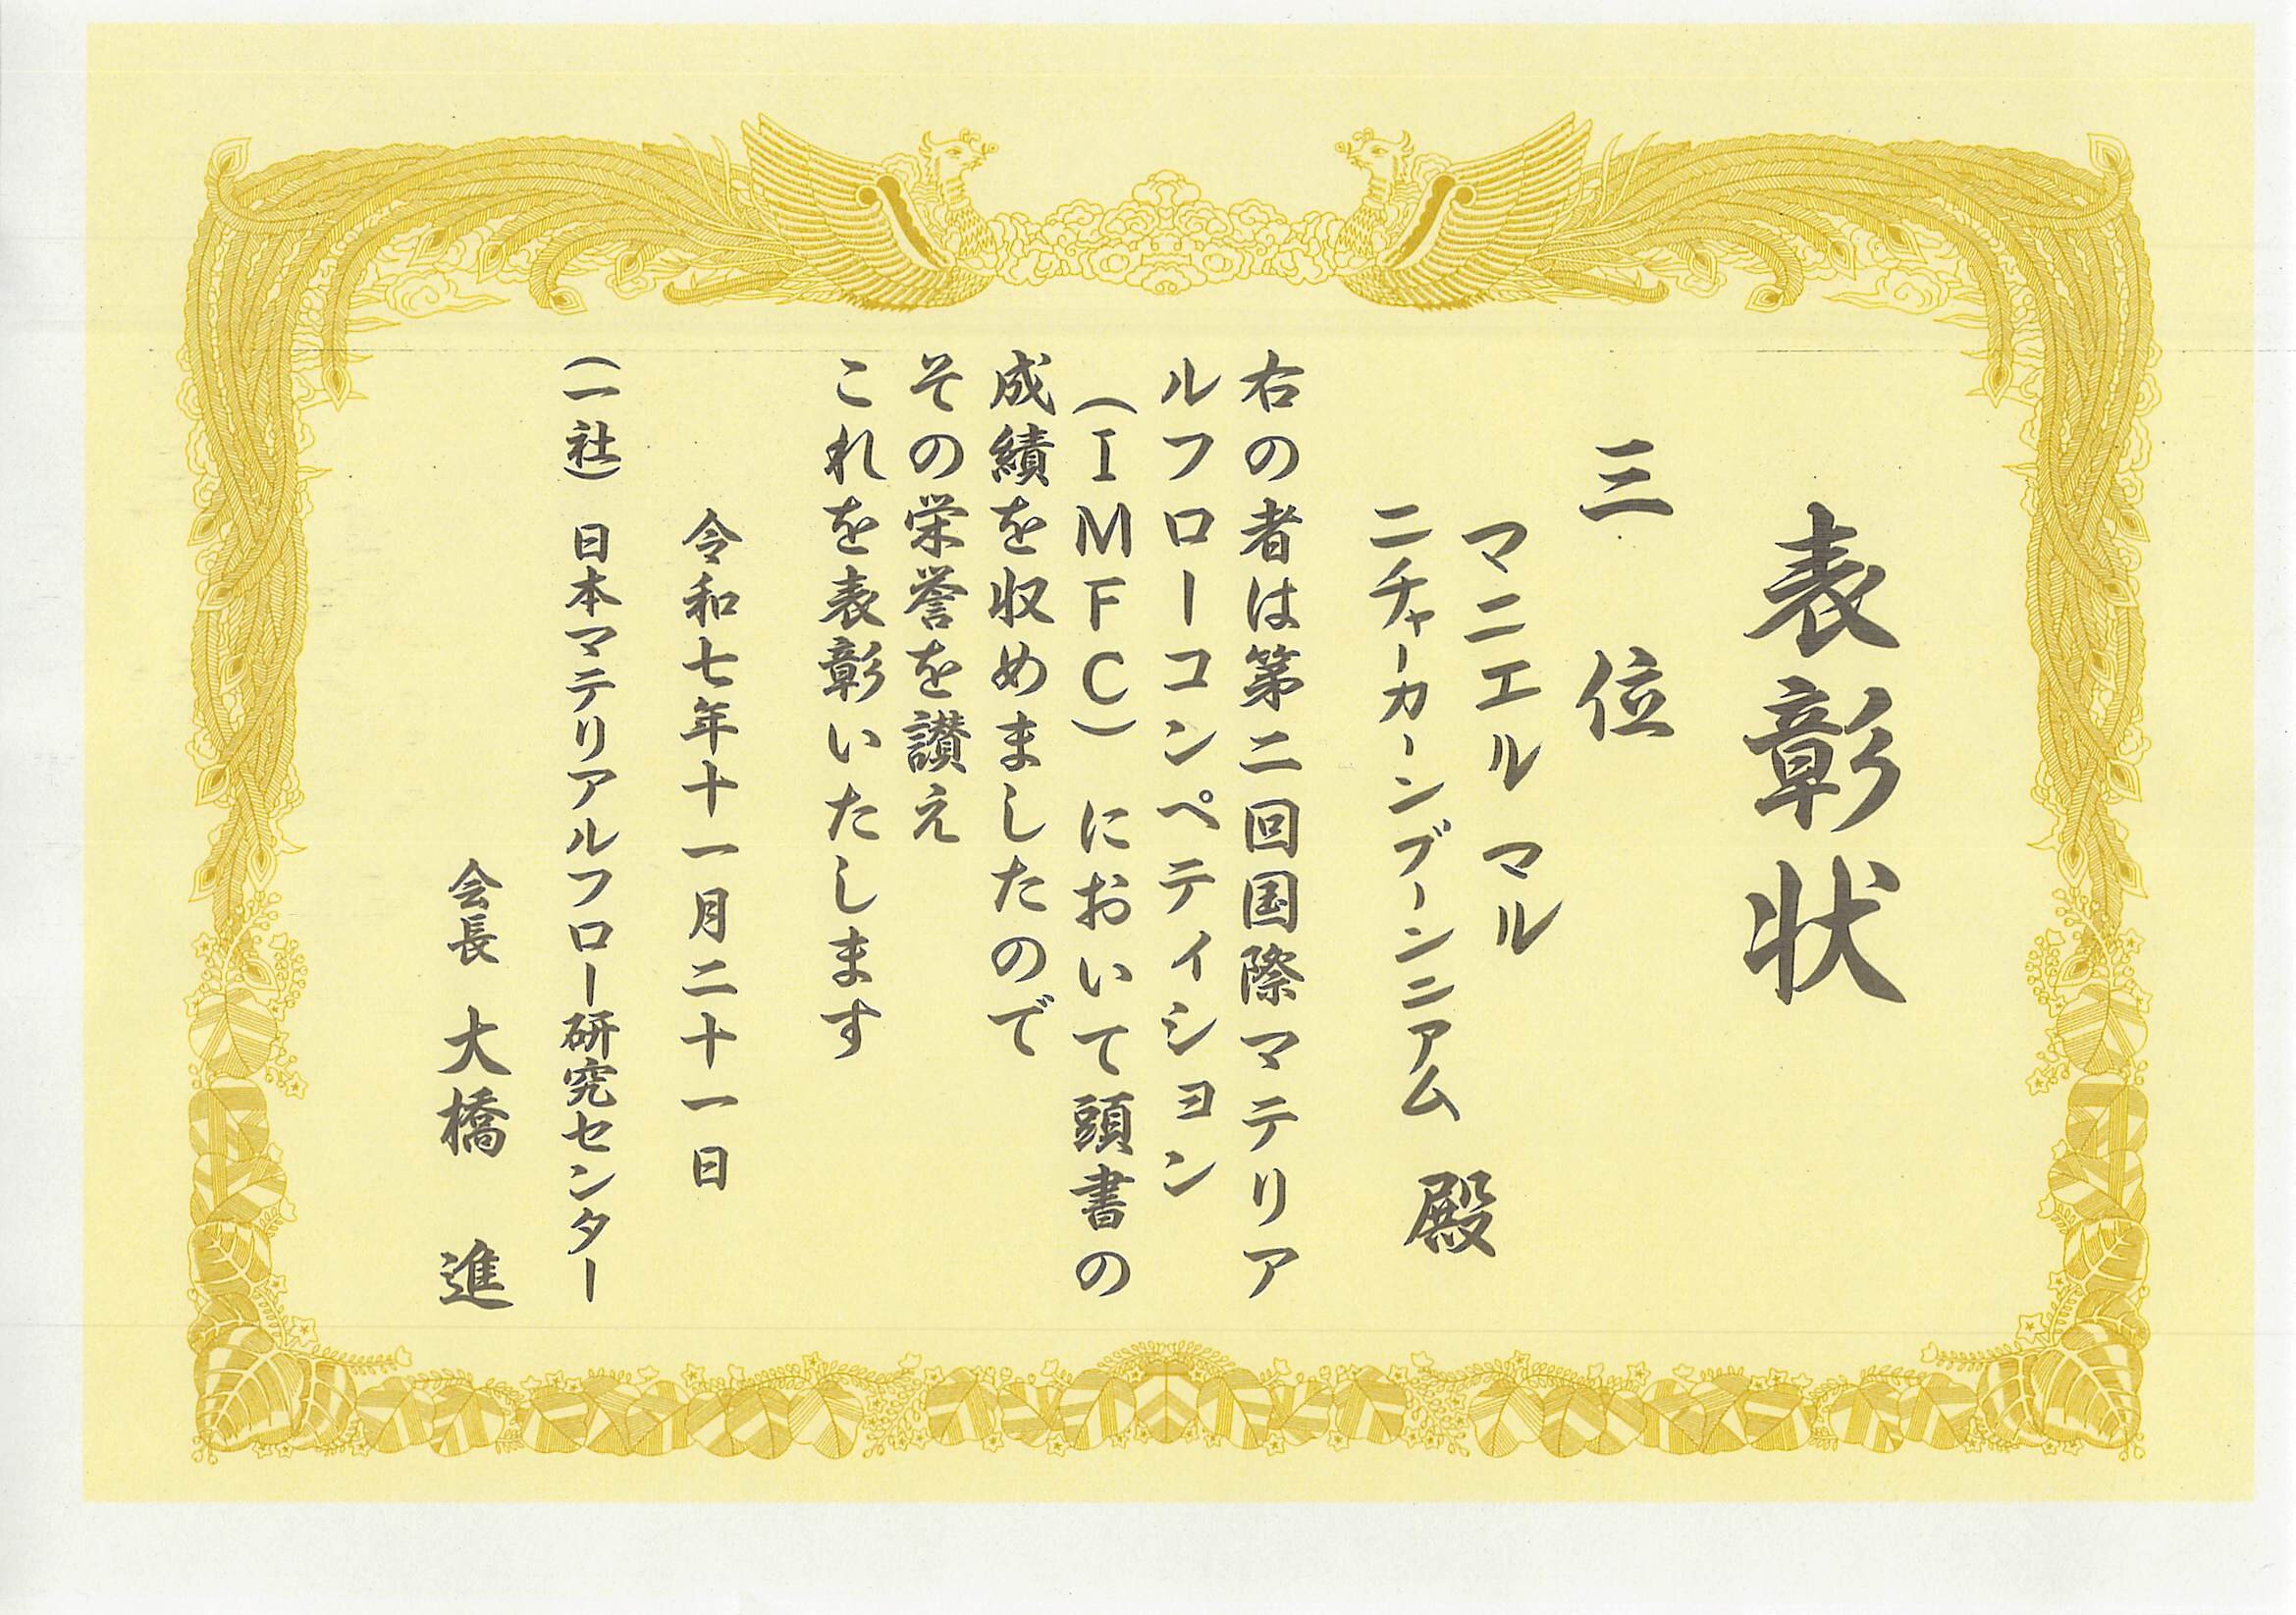 表彰状
三位
マニエル マル
ニチャーカーンブーンニアム 殿
右の者は第二回国際マテリア
ルフローコンペティション
（IMFC）において頭書の
成績を収めましたので
その栄誉を讃え
これを表彰いたします
令和七年十一月二十一日
（一社）日本マテリアルフロー研究センター
会長 大橋 進